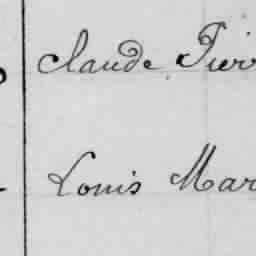 Claude Pier
Louis Mar